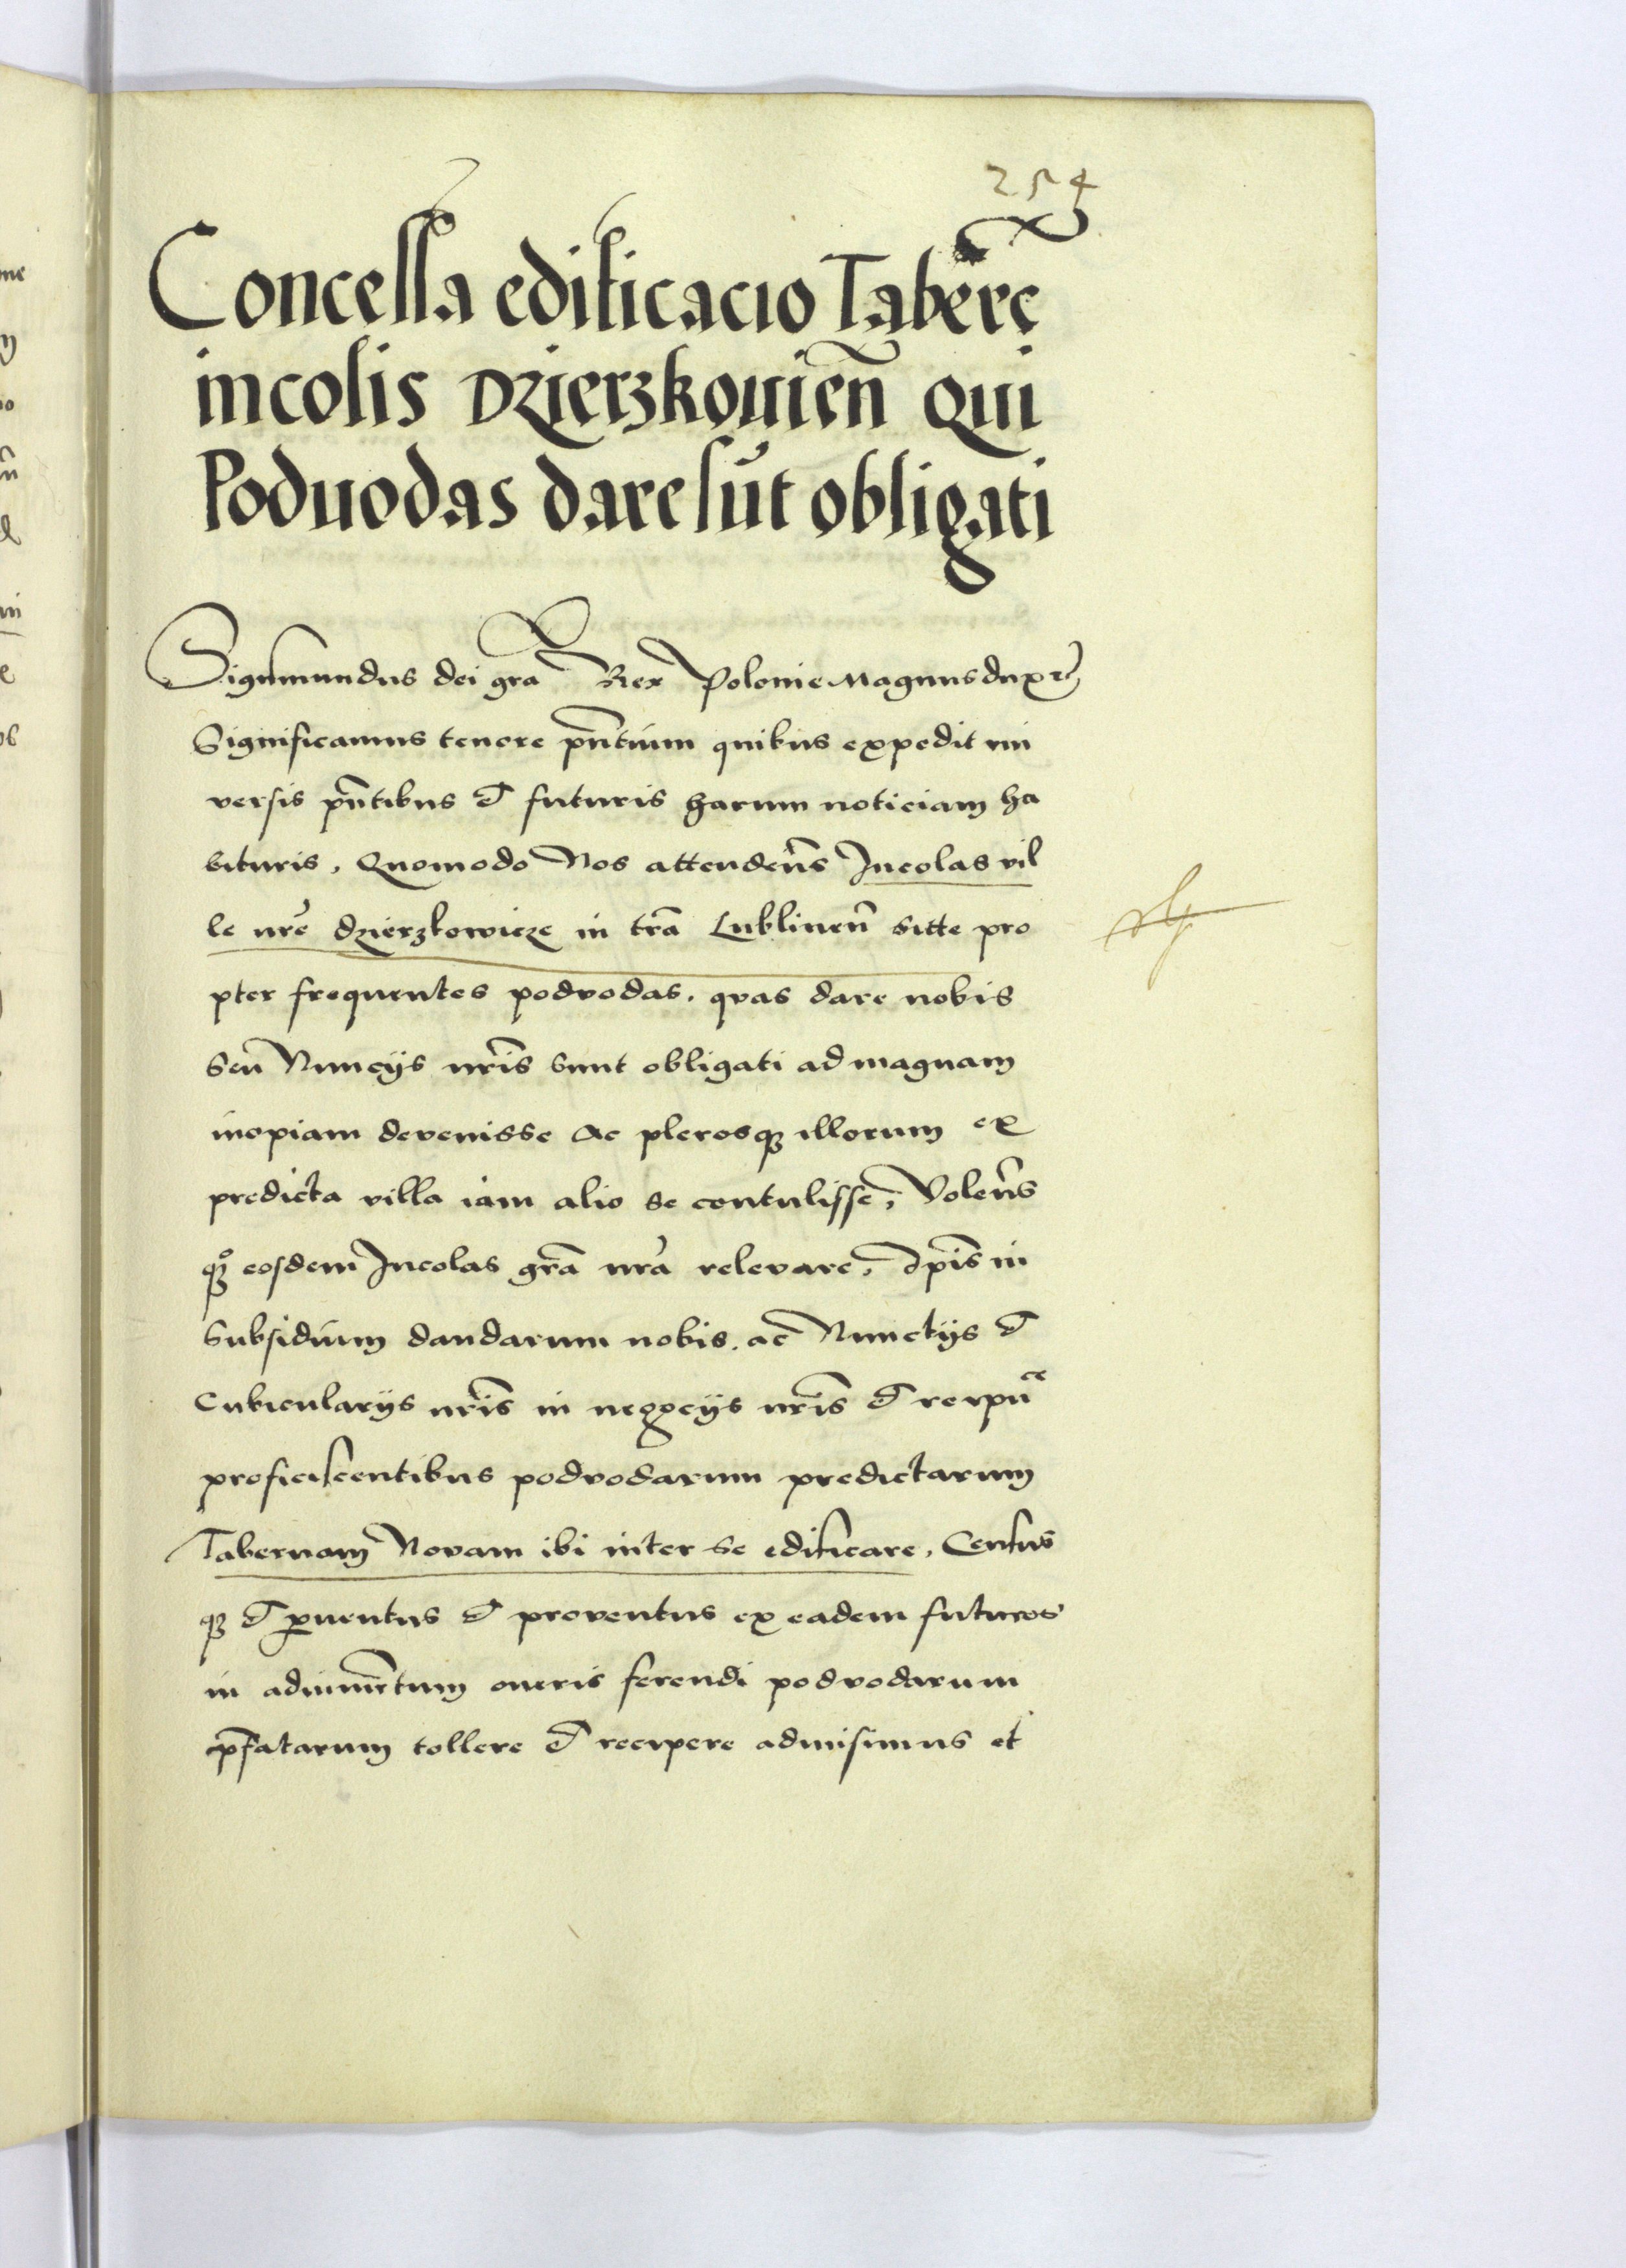 254
Concessa edificacio Taberę
incolis Dzierzkouień Qui
Poduodas dare sūt obligati
Sigismundus dei gra Rex Polonie Magnus dux rc
Significamus tenore pñtium quibus expedit vni
versis pñtibus et futuris harum noticiam ha
bituris, Quomodo Nos attendeñs Incolas vil
le nrẽ dzierzkowicze in trã Lublineñ sitte pro
pter frequentes podvodas, quas dare nobis
seu Nuncijs nrĩs sunt obligati ad magnam
inopiam devenisse Ac plerosq illorum ex
predicta villa iam alio se contulisse, Voleñs
q eosdem Incolas grã nrã relevare, Ipĩs in
Subsidium dandarum nobis, ac Nunctijs et
Cubicularijs nrĩs in negocijs nrĩs et reipũce
proficiscentibus podvodarum predictarum
Tabernam Novam ibi inter se edificare, Census
q et pruentus et proventus ex eadem futuros
in adiumẽtum oneris ferendi podvodarum
p̃fatarum tollere et recipere admisimus et